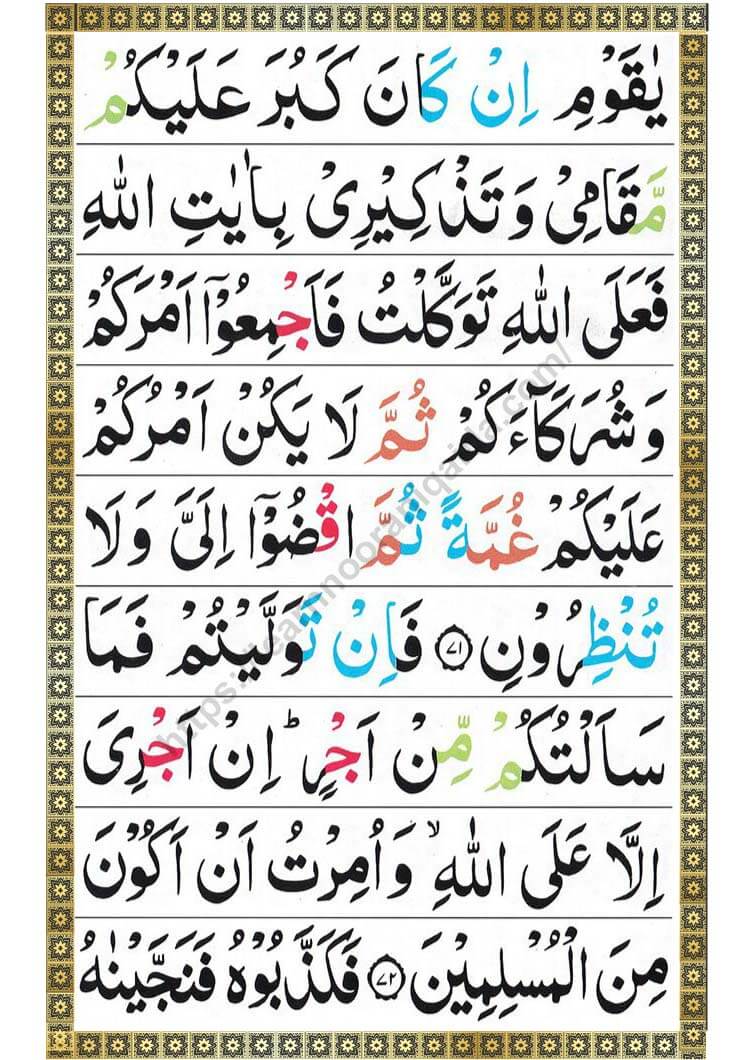 يٰقَوْمِ اِنْ كَانَ كَبُرَ عَلَيْكُمْ
مَّقَامِیْ وَ تَذْكِيْرِیْ بِاٰيٰتِ اللّٰهِ
فَعَلَی اللّٰهِ تَوَكَّلْتُ فَاَجْمِعُوْۤا اَمْرَكُمْ
وَ شُرَكَآءَكُمْ ثُمَّ لَا يَكُنْ اَمْرُكُمْ
عَلَيْكُمْ غُمَّةً ثُمَّ اقْضُوْۤا اِلَیَّ وَ لَا
تُنْظِرُوْنِ ﴿۷۱﴾ فَاِنْ تَوَلَّيْتُمْ فَمَا
سَاَلْتُكُمْ مِّنْ اَجْرٍ ؕ اِنْ اَجْرِیَ
اِلَّا عَلَی اللّٰهِ ۙ وَ اُمِرْتُ اَنْ اَكُوْنَ
مِنَ الْمُسْلِمِيْنَ ﴿۷۲﴾ فَكَذَّبُوْهُ فَنَجَّيْنٰهُ
https://learnnooraniqaida.com/